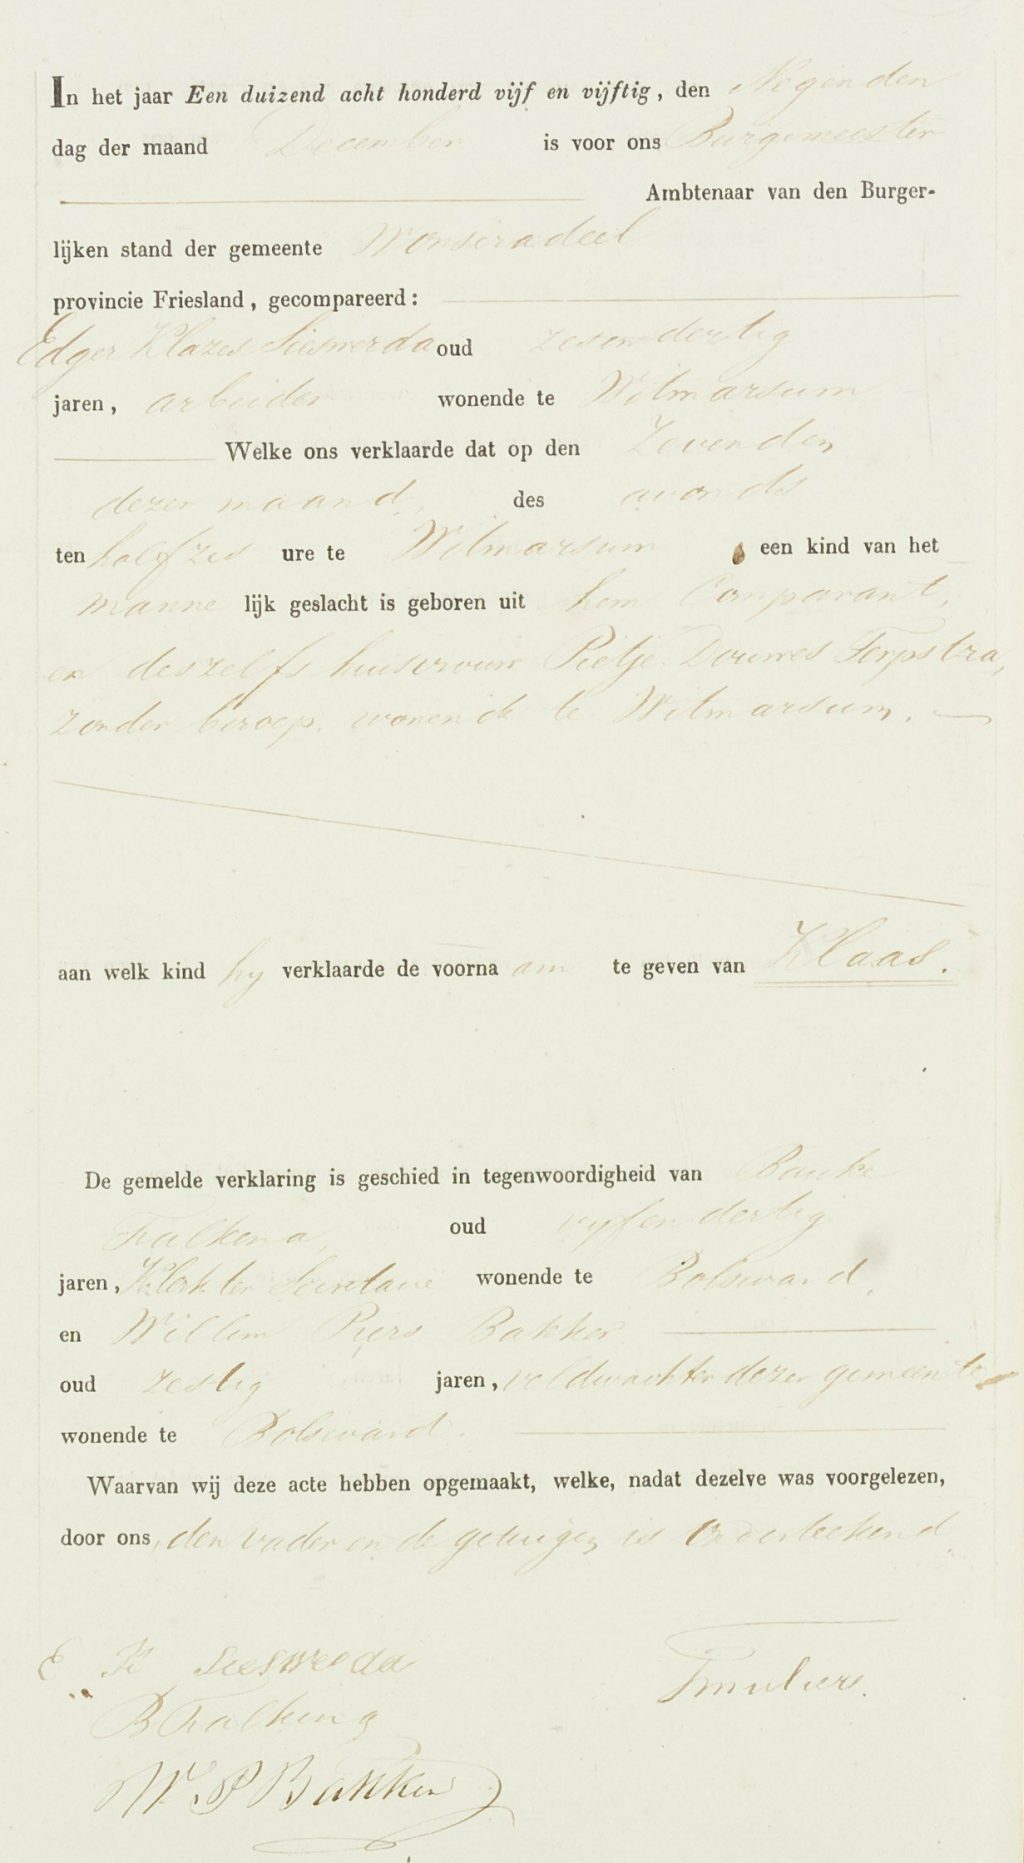 In het jaar Een duizend acht honderd vijf en vijftig, den Negenden
dag der maand December is voor ons Burgemeester
Ambtenaar van den Burger-
lijken stand der gemeente Wonseradeel
provincie Friesland, gecompareerd:
Edger Klazes Sieswerda oud zesendertig
jaren, arbeider wonende te Witmarsum
Welke ons verklaarde dat op den Zevenden
dezer maand, des avonds
ten half zes ure te Witmarsum een kind van het
manne lijk geslacht is geboren uit hem Comparant,
en deszelfs huisvrouw Pietje Douwes Terpstra,
zonder beroep, wonende te Witmarsum.
aan welk kind hy verklaarde de voorna am te geven van Klaas.
De gemelde verklaring is geschied in tegenwoordigheid van Bauke
Falkena, oud vyfendertig
jaren, Klerk ter Secretarie wonende te Bolsward,
en Willem Piers Bakker
oud zestig jaren, veldwachter dezer gemeente
wonende te Bolsward.
Waarvan wij deze acte hebben opgemaakt, welke, nadat dezelve was voorgelezen,
door ons, den vader en de getuigen is Onderteekend.
E K Sieswerda
B Falkena
W. P Bakker